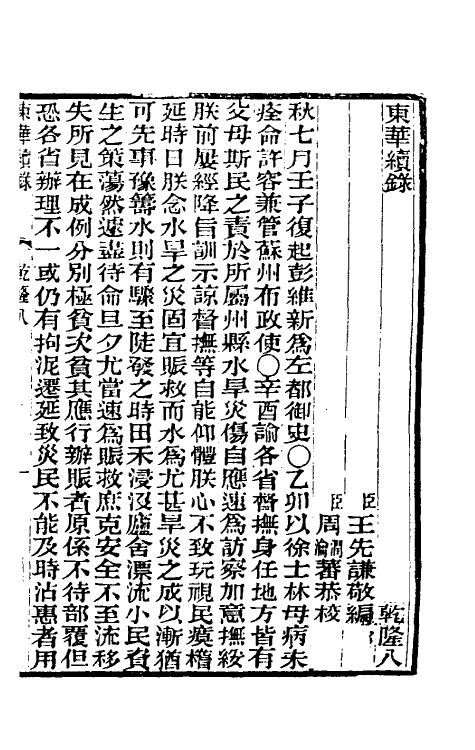 東華續錄
乾隆八
臣王先謙敬編
臣周潤蕃周瀹蕃恭校
秋七月壬子復起彭維新爲左都御史○乙卯以徐士林母病未
痊命許容兼管蘇州布政使○辛酉諭各省督撫身任地方皆有
父母斯民之責於所屬州縣水旱災傷自應速爲訪察加意撫綏
朕前屢經降旨訓示諒督撫等自能仰體朕心不致玩視民瘼稽
延時日朕念水旱之災固宜賑救而水爲尤甚旱災之成以漸猶
可先事豫籌水則有驟至陡發之時田禾浸沒廬舍漂流小民資
生之策蕩然遽盡待命旦夕尤當速爲賑救庶克安全不至流移
失所見在成例分別極貧次貧其應行辦賑者原係不待部覆但
恐各省辦理不一或仍有拘泥遷延致災民不能及時沾惠者用
東華續錄 乾隆八 一